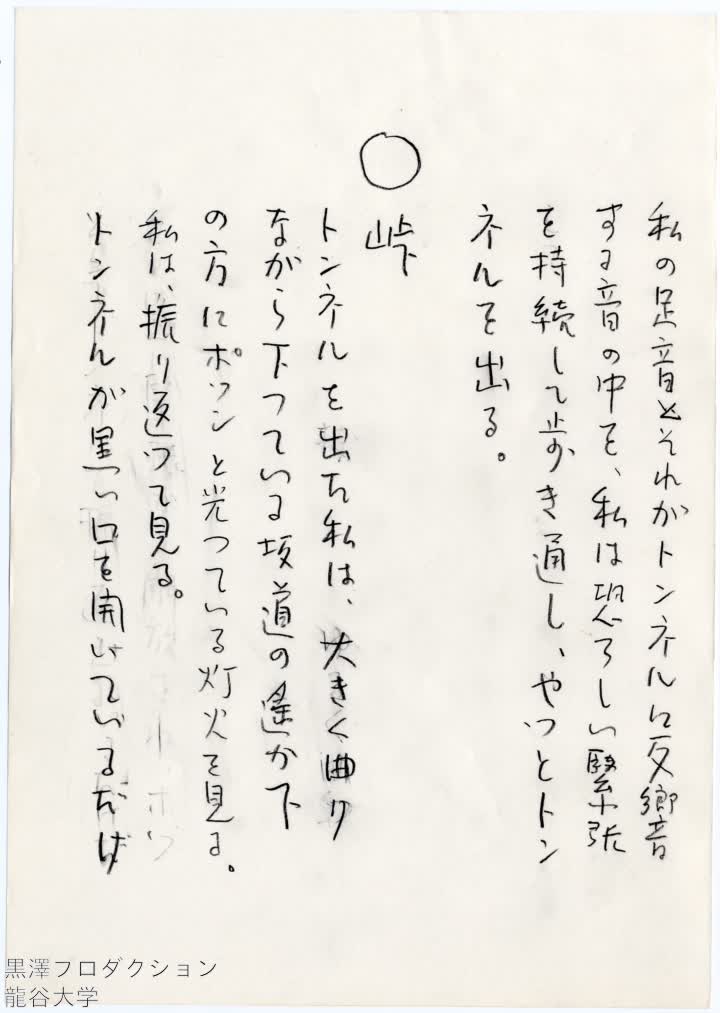 私の足音とそれがトンネルに反響
する音の中を、私は恐ろしい緊張
を持続して歩き通し、やつとトン
ネルを出る。
○ 峠
トンネルを出た私は、大きく曲り
ながら下つている坂道の遙か下
の方にポツンと光つている灯火を見る。
私は、振り返つて見る。
トンネルが黒い口を開いているだけ
黒澤プロダクション
龍谷大学